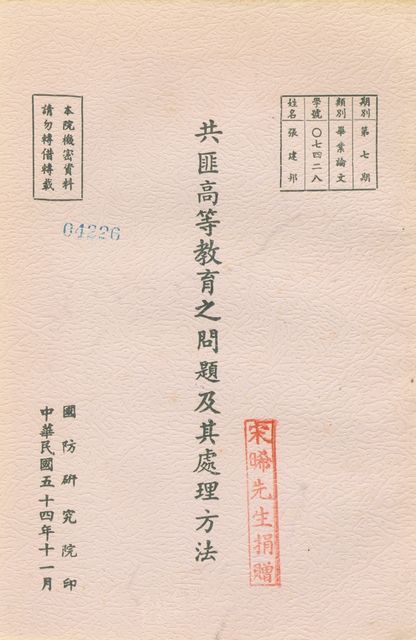 期別 第七期
類別 畢業論文
學號 〇七四二八
姓名 張建邦
共匪高等教育之問題及其處理方法
宋晞先生捐贈
本院機密資料
請勿轉借轉載
04226
國防研究院印
中華民國五十四年十一月